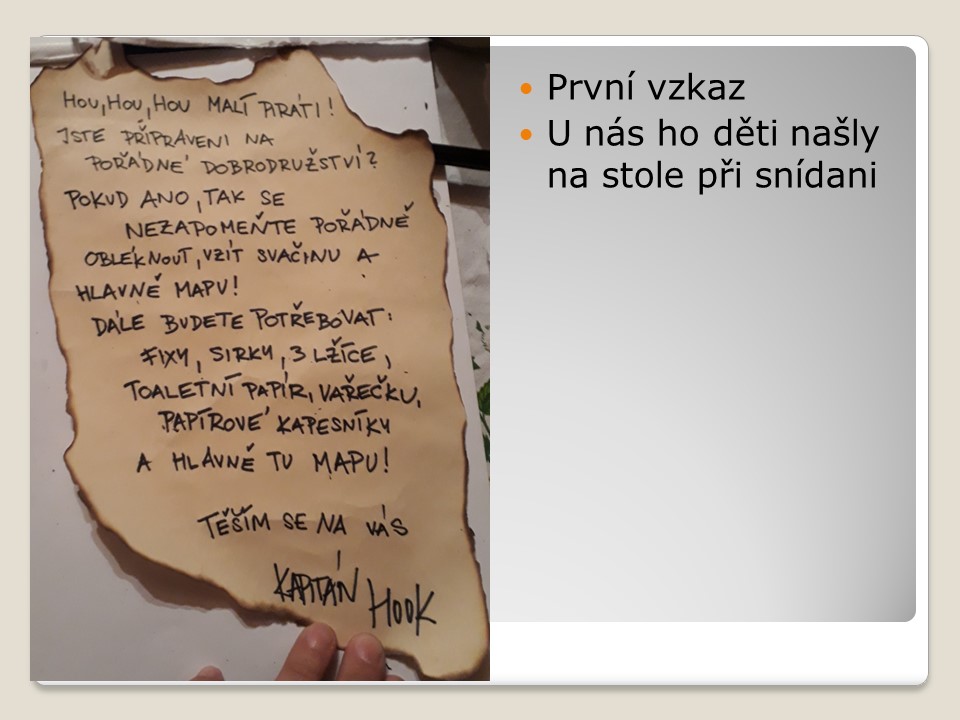 HOU, HOU, HOU MALÍ PIRÁTI!
JSTE PŘIPRAVENI NA
POŘÁDNÉ DOBRODRUŽSTVÍ?
POKUD ANO, TAK SE
NEZAPOMEŇTE POŘÁDNĚ
OBLÉKNOUT, VZÍT SVAČINU A
HLAVNĚ MAPU!
DÁLE BUDETE POTŘEBOVAT:
FIXY, SIRKY, 3 LŽÍCE,
TOALETNÍ PAPÍR, VAŘEČKU,
PAPÍROVÉ KAPESNÍKY
A HLAVNĚ TU MAPU!
TĚŠÍM SE NA VÁS
KAPITÁN HOOK
• První vzkaz
• U nás ho děti našly
na stole při snídani